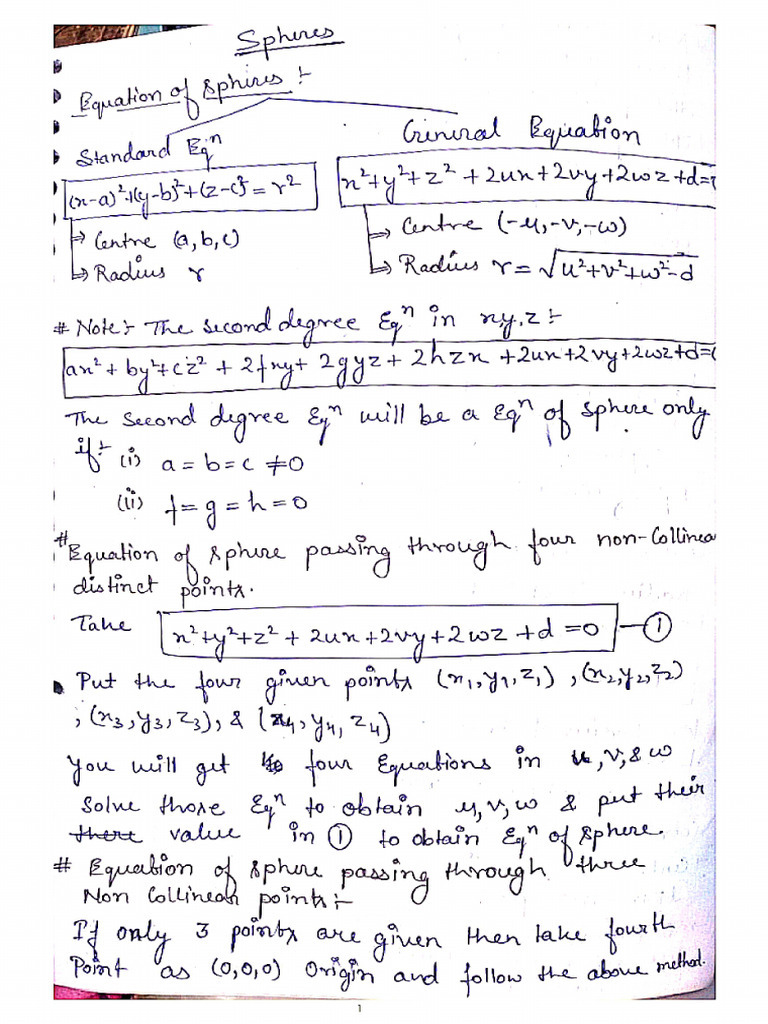 Spheres
Equation of spheres :-
Standard Eqⁿ
General Equation
(x-a)²+(y-b)²+(z-c)² = r²
x²+y²+z² + 2ux+2vy+2wz+d=
⇒ Centre (a,b,c)
⇒ Radius r
⇒ Centre (-u,-v,-w)
⇒ Radius r = √u²+v²+w²-d
# Note:- The second degree Eqⁿ in x,y,z :-
ax²+by²+cz² + 2fxy+ 2gyz+ 2hzx +2ux+2vy+2wz+d=
The second degree Eqⁿ will be a Eqⁿ of sphere only
if:- (i) a = b = c ≠ 0
(ii) f = g = h = 0
# Equation of sphere passing through four non-Collinea
distinct points.
Take x²+y²+z² + 2ux+2vy+2wz +d =0 — ①
Put the four given points (x₁,y₁,z₁) , (x₂,y₂,z₂)
, (x₃,y₃,z₃), & (x₄,y₄,z₄)
You will get four Equations in u,v,& w
Solve those Eqⁿ to obtain u,v,w & put their
there value in ① to obtain Eqⁿ of sphere.
# Equation of sphere passing through three
Non Collinear points:-
If only 3 points are given then take fourth
Point as (0,0,0) Origin and follow the above method.
1